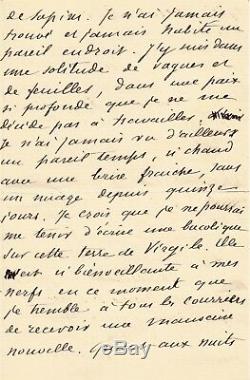 de sapins. Je n'ai jamais
trouvé et jamais habité un
pareil endroit. J'y suis dans
une solitude de vagues et
de feuilles, dans une paix
si profonde que je ne me
décide pas à travailler.
Je n'ai jamais vu d'ailleurs
un pareil temps, si chaud
avec une brise fraîche, sans
un nuage depuis quinze
jours. Je crois que je ne pourrai
me tenir d'écrire une bucolique
sur cette terre de Virgile. Elle
est si bienveillante à mes
nerfs en ce moment que
je tremble à tous les courriers
de recevoir une mauvaise
nouvelle. aux nuits
bay